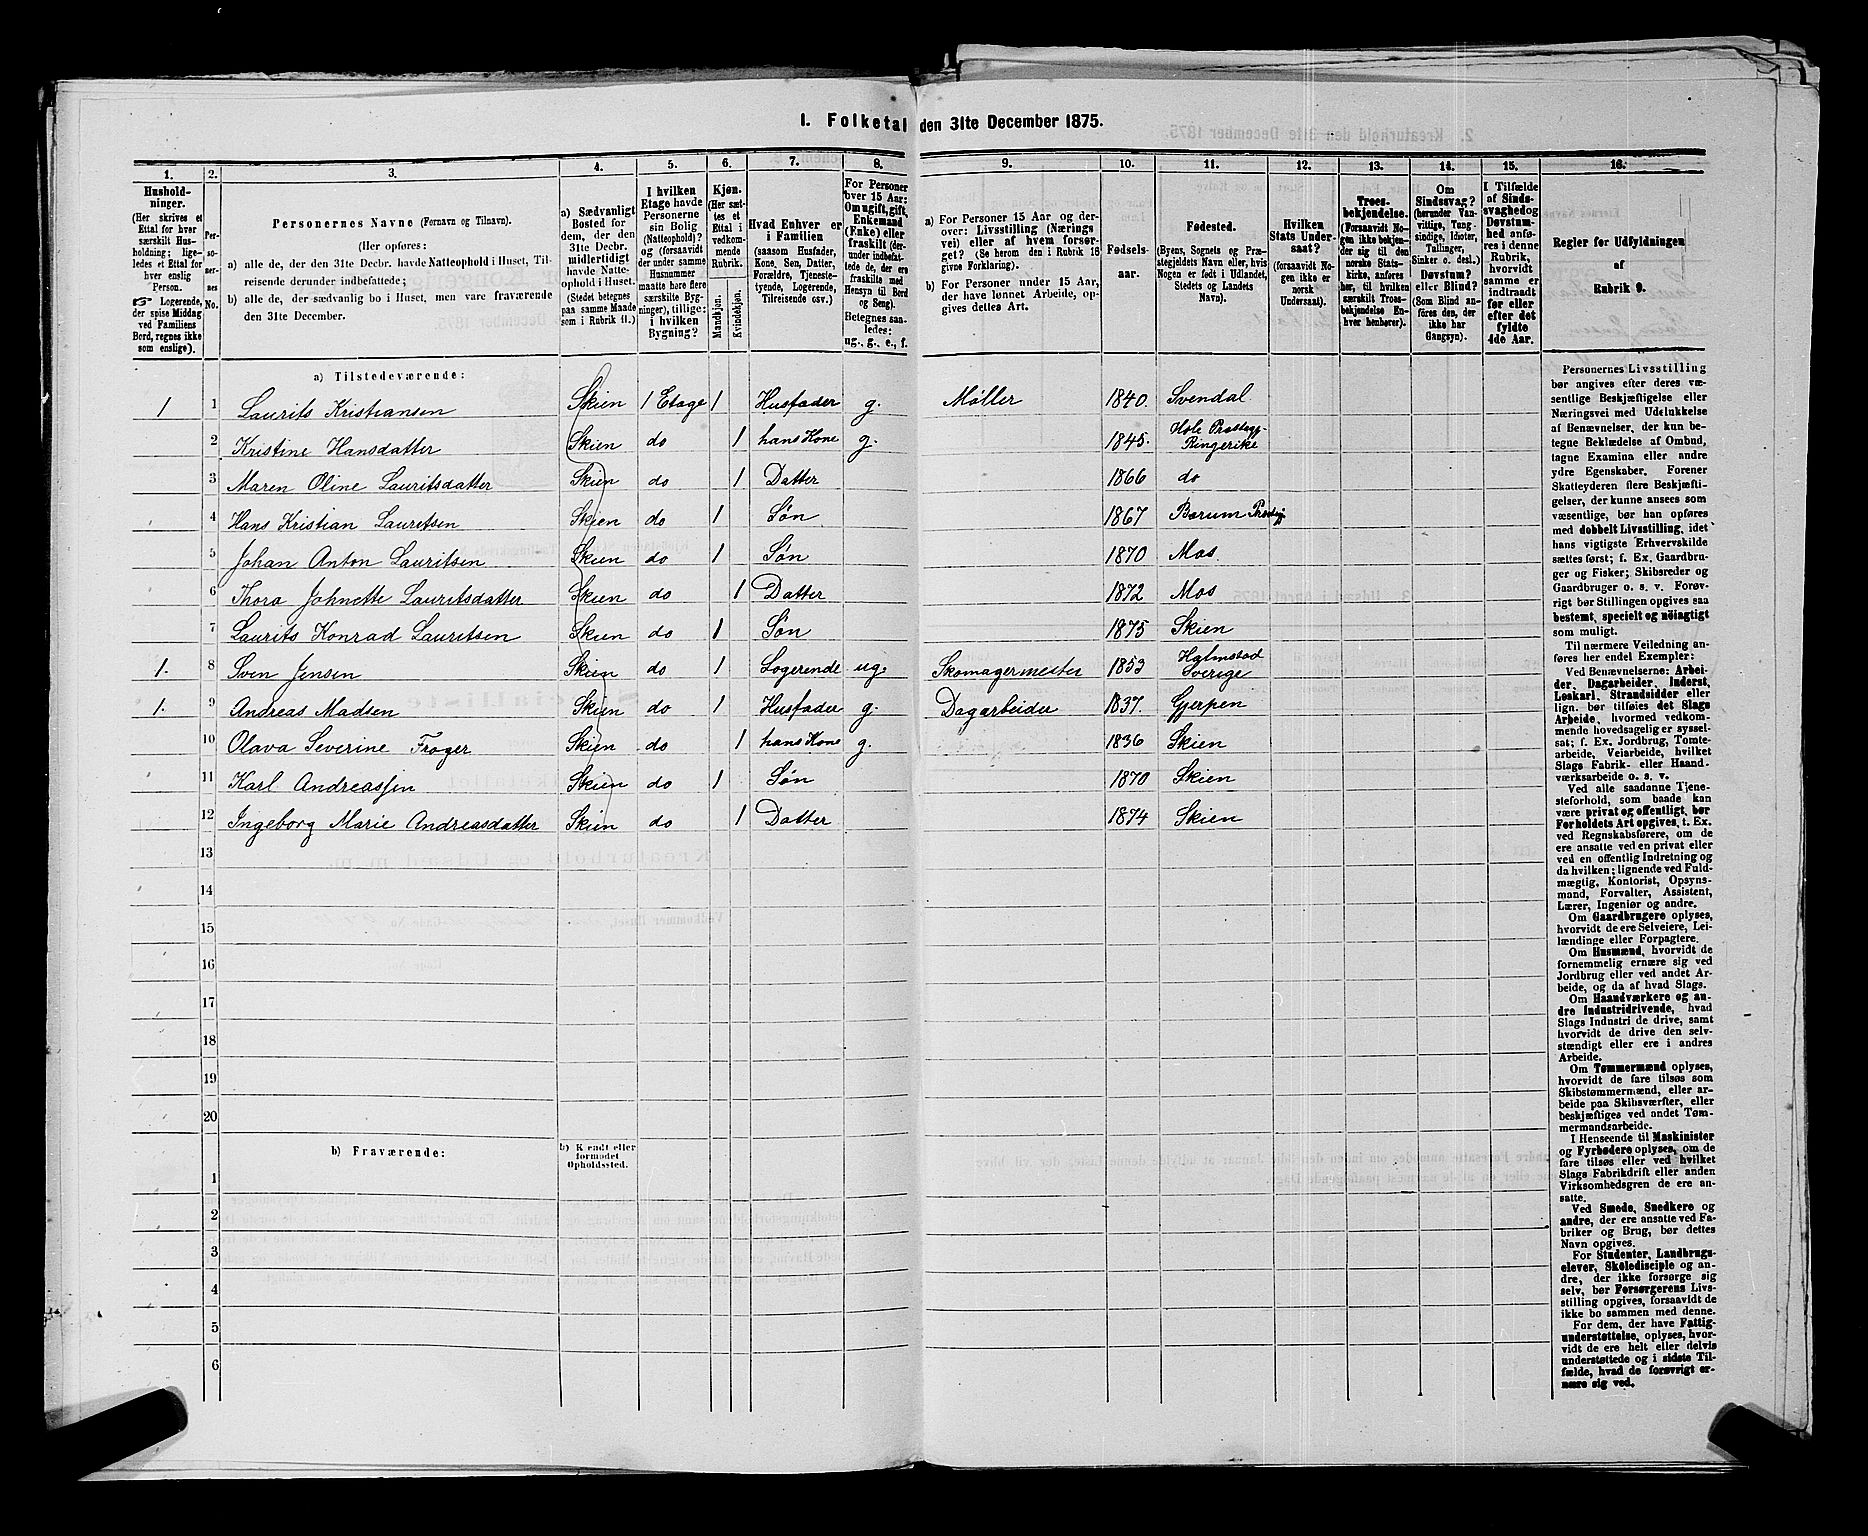 1. Folketal den 31te December 1875.
1. 2. 3. 4. 5. 6. 7. 8. 9. 10. 11. 12. 13. 14. 15. 16.
Hushold-
ninger.
(Her skrives et
Ettal for hver
særskilt Hus-
holdning; lige-
ledes et Ettal for
hver enslig
Person.
☞ Logerende,
der spise Middag
ved Familiens
Bord, regnes ikke
som enslige).
Per-
so-
ner-
nes
No.
Personernes Navne (Fornavn og Tilnavn).
(Her opføres:
a) alle de, der den 31te Decbr. havde Natteophold i Huset, Til-
reisende derunder indbefattede;
b) alle de, der sædvanlig bo i Huset, men vare fraværende
den 31te December.
a) Sædvanligt
Bosted for
dem, der den
31te Decbr.
midlertidigt
havde Natte-
ophold i Huset.
(Stedet betegnes
paa samme Maade
som i Rubrik 11.)
I hvilken
Etage havde
Personerne
sin Bolig
(Natteophold)?
og (forsaavidt
der under samme
Husnummer
maatte høre flere
særskilte Byg-
ninger), tillige:
i hvilken
Bygning?
Kjøn.
(Her sæt-
tes et
Ettal i
vedkom-
mende
Rubrik.
Mandkjøn.
Kvindekjøn.
Hvad Enhver er
i Familien
(saasom Husfader,
Kone, Søn, Datter,
Forældre, Tjeneste-
tyende, Logerende,
Tilreisende osv.)
For Personer
over 15 Aar:
Om ugift, gift,
Enkemand
(Enke) eller
fraskilt (der-
under indbefat-
tede de, der ere
fraskilte med
Hensyn til Bord
og Seng).
Betegnes saa-
ledes:
ug., g., e., f.
a) For Personer 15 Aar og der-
over: Livsstilling (Nærings
vei) eller af hvem forsør-
get? (Se herom den i Rubrik 16
givne Forklaring).
b) For Personer under 15 Aar,
der have lønnet Arbeide, op-
gives dettes Art.
Fødsels-
aar.
Fødested.
(Byens, Sognets og Præ-
stegjeldets Navn eller, hvis
Nogen er født i Udlandet,
Stedets og Landets
Navn).
Hvilken
Stats Under-
saat?
(forsaavidt No-
gen ikke er
norsk
Undersaat).
Troes-
bekjendelse.
(Forsaavidt No-
gen ikke bekjen-
der sig til den
norske Stats-
kirke, anføres
her, til hvilken
særskilt Troes-
bekjendelse En-
hver henhører).
Om
Sindssvag?
(herunder Van-
vittige, Tung-
sindige, Idioter,
Tullinger,
Sinker o. desl.)
Døvstum?
eller Blind?
(Som Blind an-
føres den, der
ikke har
Gangsyn).
I Tilfælde
af Sinds-
svaghed og
Døvstum-
hed anfø-
res i denne
Rubrik,
hvorvidt
samme er
indtraadt
før eller
efter det
fyldte
4de Aar.
Regler for Udfyldningen
af
Rubrik 9.
a) Tilstedeværende:
1 1 Laurits Kristiansen Skien 1 Etage 1 Husfader g. Møller 1840. Svendal.
2 Kristine Hansdatter Skien do 1 hans Kone g. 1845. Hole Prstegj. Ringerike
3 Maren Oline Lauritsdatter Skien do 1 Datter 1866 do
4 Hans Kristian Lauritsen Skien do 1 Søn 1867 Bærum
5 Johan Anton Lauritsen Skien do 1 Søn 1870 Mos.
6 Thora Johnette Lauritsdatter Skien do 1 Datter 1872 Mos
7 Laurits Konrad Lauritsen Skien do 1 Søn 1875 Skien
1. 8 Sven Jensen Skien do 1 Logerende ug. Skomagermester 1853 Halmstad Sverige
1. 9 Andreas Madsen Skien do 1 Husfader g. Dagarbeider 1837. Gjerpen
10 Olava Severine Frøger Skien do 1 hans Kone g. 1836 Skien
11 Karl Andreassen Skien do 1 Søn 1870 Skien
12 Ingeborg Marie Andreasdatter Skien do 1 Datter 1874 Skien
13
14
15
16
17
18
19
20
b) Fraværende: b) Kjendt eller
formodet
Opholdssted.
1
2
3
4
5
6
Personernes Livsstilling
bør angives efter deres væ-
sentlige Beskjæftigelse eller
Næringsvei med Udelukkelse
af Benævnelser, der kun be-
tegne Beklædelse af Ombud,
tagne Examina eller andre
ydre Egenskaber. Forener
Skatteyderen flere Beskjæfti-
gelser, der kunne ansees som
væsentlige, bør han opføres
med dobbelt Livsstilling, idet
hans vigtigste Erhvervskilde
sættes først; f. Ex. Gaardbru-
ger og Fisker; Skibsreder og
Gaardbruger o. s. v. Forøv-
rigt bør Stillingen opgives saa
bestemt, specielt og nöiagtigt
som muligt.
Til nærmere Veiledning an-
føres her endel Exempler:
Ved Benævnelserne: Arbei-
der, Dagarbeider, Inderst,
Løskarl, Strandsidder eller
lign. bør tilføies det Slags
Arbeide, hvormed vedkom-
mende hovedsagelig er syssel-
sat; f. Ex. Jordbrug, Tomte-
arbeide, Veiarbeide, hvilket
Slags Fabrik- eller Haand-
værksarbeide o. s. v.
Ved alle saadanne Tjene-
steforhold, som baade kan
være privat og offentligt, bør
Forholdets Art opgives, t. Ex.
ved Regnskabsførere, om de
ere ansatte ved en privat eller
ved en offentlig Indretning og
da hvilken; lignende ved Fuld-
mægtig, Kontorist, Opsyns-
mand, Forvalter, Assistent,
Lærer, Ingeniør og andre.
Om Gaardbrugere oplyses,
hvorvidt de ere Selveiere, Lei-
lændinge eller Forpagtere.
Om Husmænd, hvorvidt de
fornemmelig ernære sig ved
Jordbrug eller ved andet Ar-
beide, og da af hvad Slags.
Om Haandværkere og an-
dre Industridrivende, hvad
Slags Industri de drive, samt
hvorvidt de drive den selv-
stændigt eller ere i andres
Arbeide.
Om Tømmermænd oplyses,
hvorvidt de fare tilsøs som
Skibstømmermænd, eller ar-
beide paa Skibsværfter, eller
beskjæftiges ved andet Tøm-
mermandsarbeide.
I Henseende til Maskinister
og Fyrbødere oplyses, om de
fare tilsøs eller ved hvilket
Slags Fabrikdrift eller anden
Virksomhedsgren de ere an-
satte.
Ved Smede, Snedkere og
andre, der ere ansatte ved Fa-
briker og Brug, bør dettes
Navn opgives.
For Studenter, Landbrugs-
elever, Skoledisciple og an-
dre, der ikke forsørge sig
selv, bør Forsørgerens Livs-
stilling opgives, forsaavidt de
ikke bo sammen med denne.
For dem, der have Fattig-
understøttelse, oplyses, hvor-
vidt de ere helt eller delvis
understøttede og i sidste Til-
fælde, hvad de forøvrigt er-
nære sig ved.